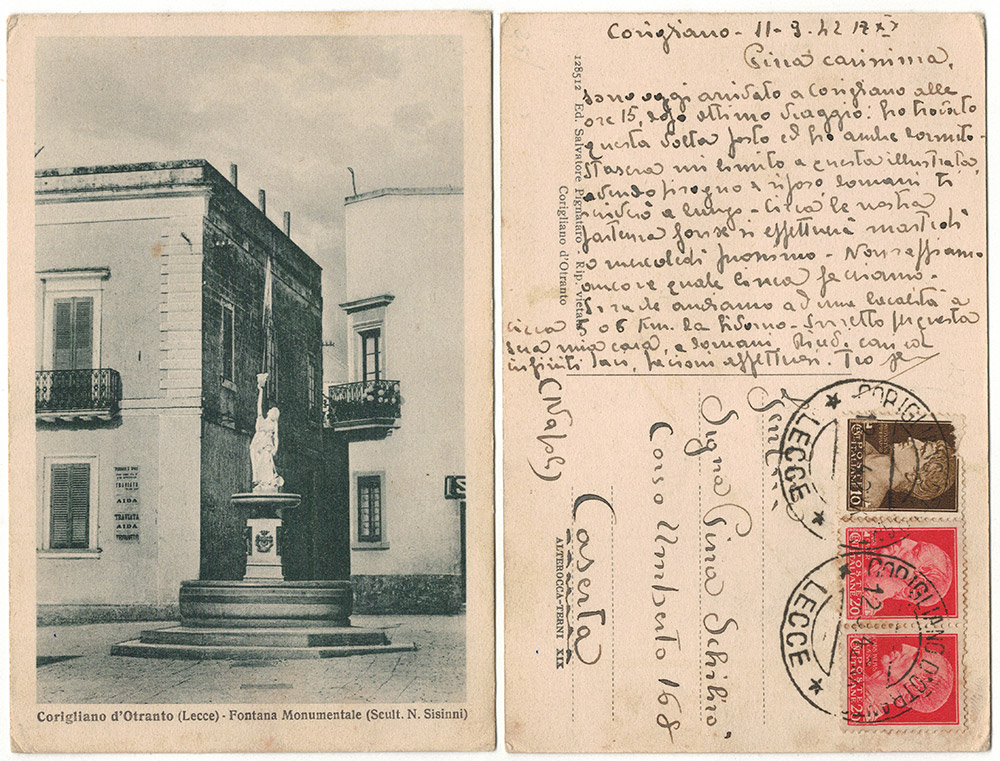 TRAVIATA
AIDA
TRAVIATA
AIDA
Corigliano d'Otranto (Lecce) - Fontana Monumentale (Scult. N. Sisinni)
Corigliano - 11-9-42
carissima,
sono oggi arrivato a Corigliano alle
ore 15, dopo ottimo viaggio. Ho trovato
questa volta posto ed ho anche dormito.
Stasera mi limito a questa illustrata
avendo bisogno di riposo, domani ti
scriverò a lungo. Circa la nostra
partenza forse si effettuerà martedì
o mercoledì prossimo. Non sappiamo
ancora quale linea facciamo.
andiamo ad una località a
circa 6 Km. da Livorno. per questa
sera mia cara, a domani. Ricevi con
infiniti baci, affettuosi. Tuo
128512 Ed. Salvatore Pignataro - Rip. vietata
Corigliano d'Otranto
Gent.
Sig.na Pina Schiliro
Corso Umberto 168
(Napoli)
Caserta
ALTEROCCA-TERNI XIX
CORIGLIANO
LECCE
CORIGLIANO D'OTRANTO
12
LECCE
POSTE ITALIANE
10
POSTE ITALIANE
20
POSTE ITALIANE
20